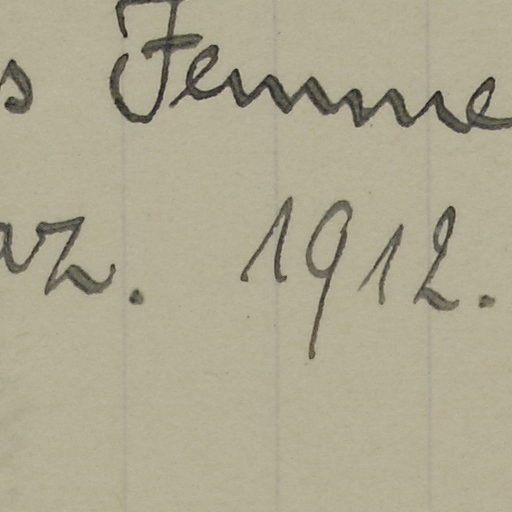 s Femme
az. 1912.